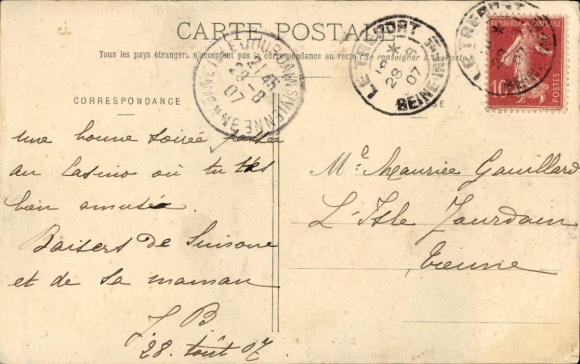 CARTE POSTALE
Tous les pays étrangers n'acceptent pas la correspondance au recto (Se renseigner à la Poste)
CORRESPONDANCE
une bonne soirée passée
au Casino où tu t'es
bien amusée
Baisers de
et de sa maman
J B
28 Août 07
Mr Maurice Gouillard
L'Isle Jourdain
Vienne
LE TREPORT
28 -8
07
SEINE INF
L'ISLE-JOURDAIN VIENNE
28 -8
07
LE TREPORT
07
REPUBLIQUE FRANÇAISE
10
POSTES